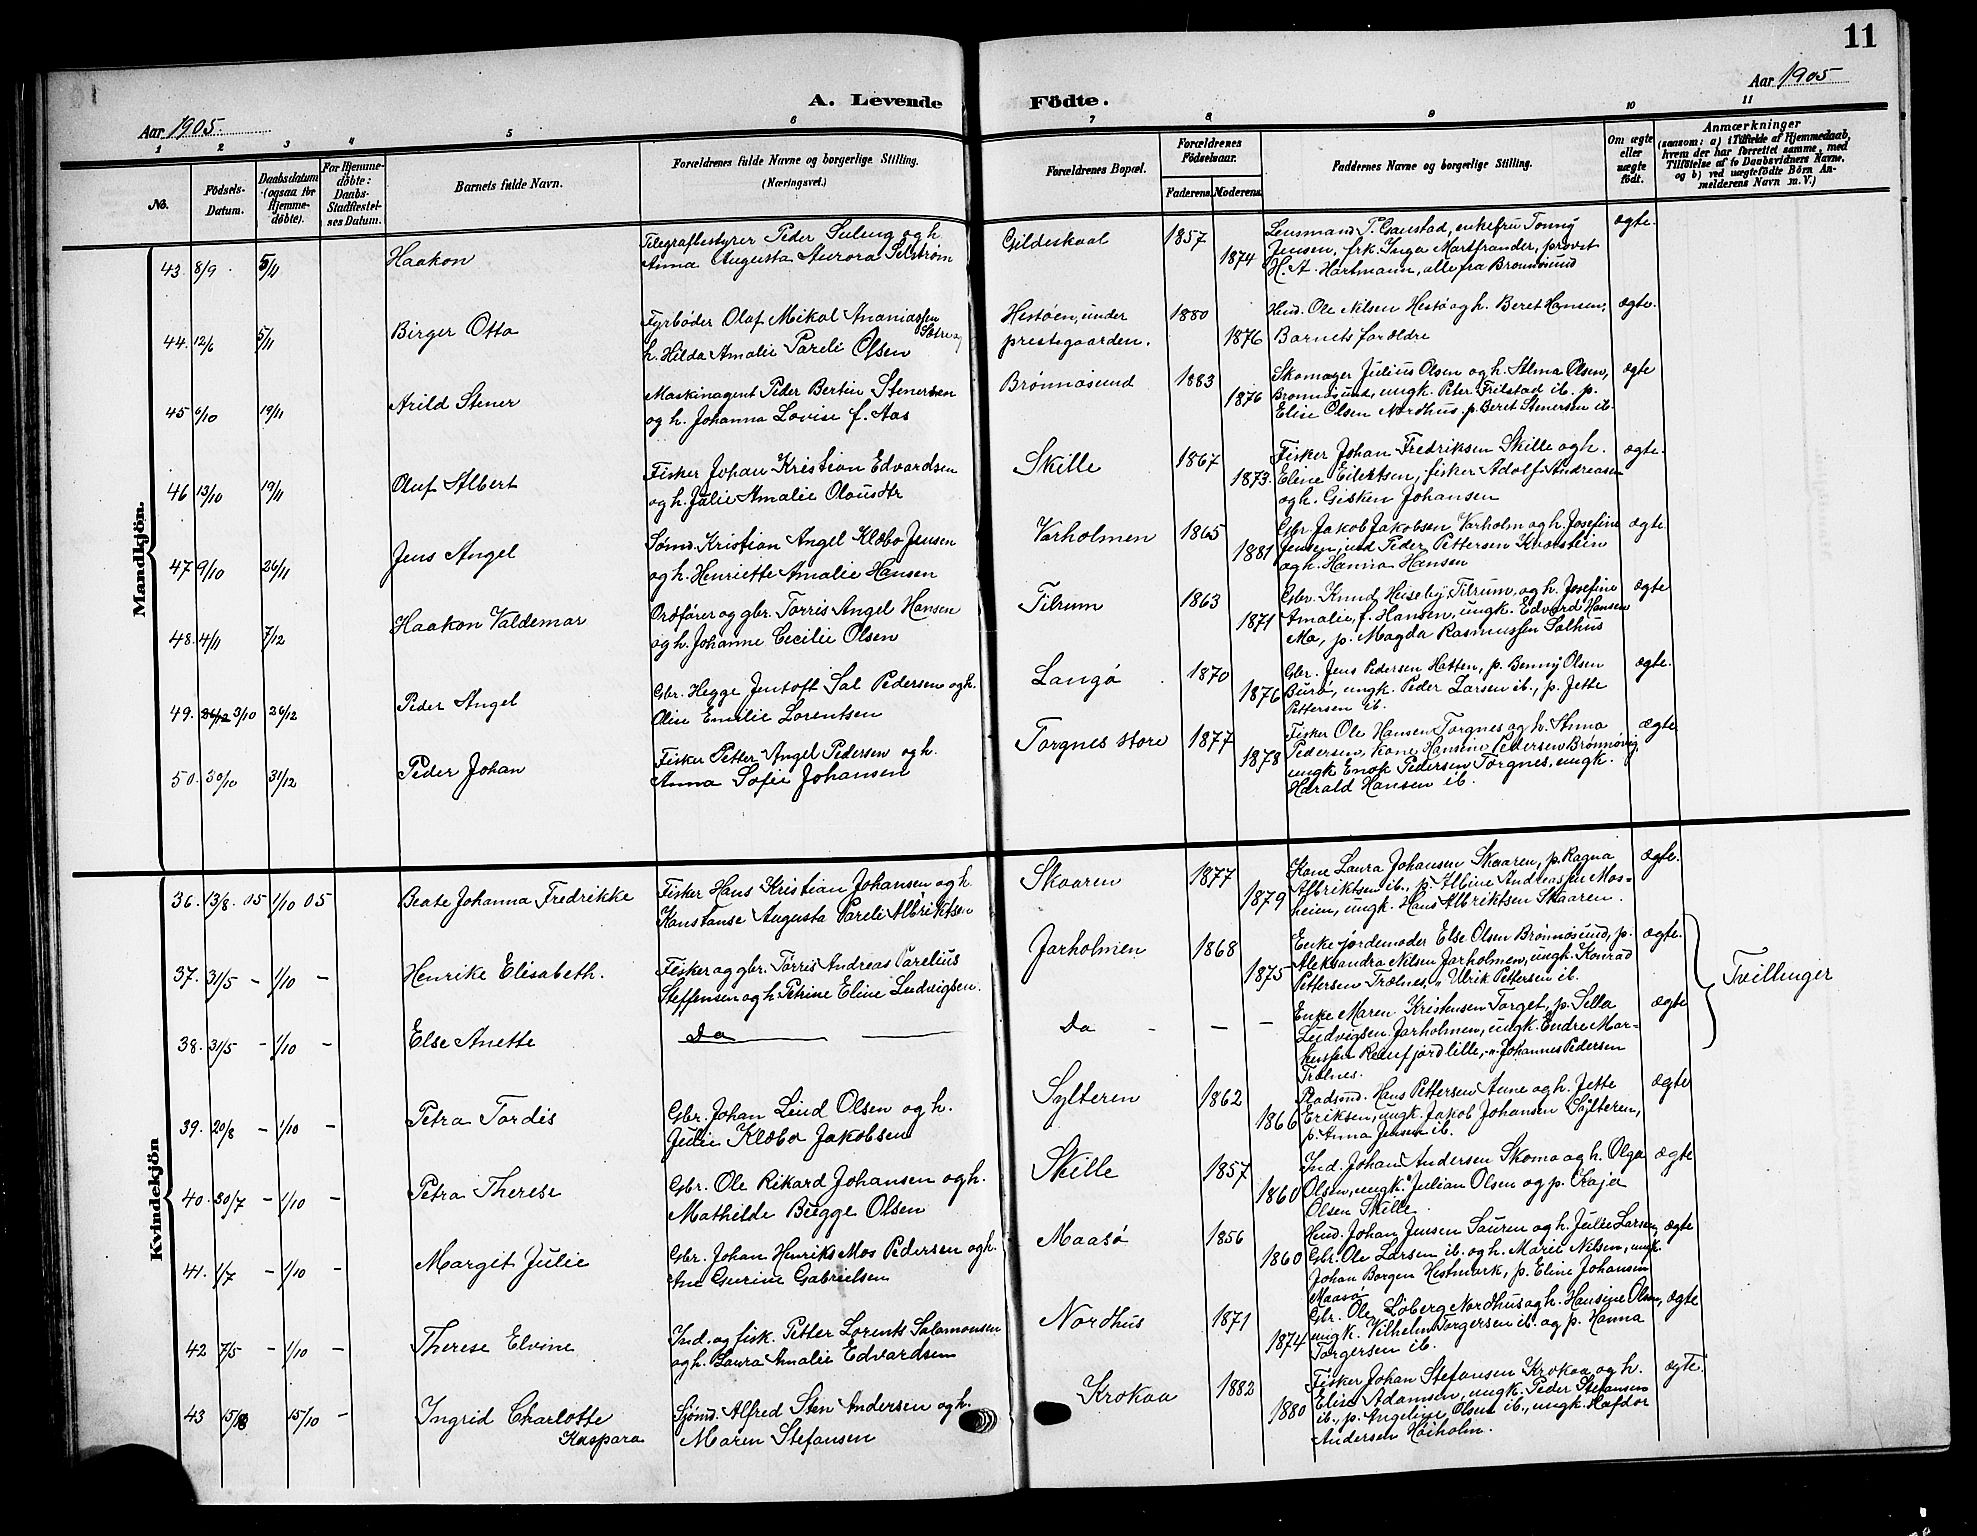 11
A. Levende Födte.
Aar 1905.
Aar 1905
1 2 3 4 5 6 7 8 9 10 11
No.
Födsels-Datum.
Daabsdatum (ogsaa for Hjemme-döbte).
For Hjemme-döbte: Daabs-Stadfæstel-ses Datum.
Barnets fulde Navn.
Forældrenes fulde Navne og borgerlige Stilling. (Næringsvei.)
Forældrenes Bopæl.
Forældrenes Födselsaar.
Faderens. Moderens.
Faddernes Navne og borgerlige Stilling.
Om ægte eller uægte födt.
Anmærkninger
(saasom: a) i Tilfælde af Hjemmedaab, hvem der har forrettet samme, med Tilföielse af to Daabsvidners Navne, og b) ved uægtefödte Börn An-melderens Navn m. V.)
Mandkjön.
43. 8/9. 5/11 Haakon
Telegrafbestyrer Peder Suleng og h.
Anna Augusta Aurora Selström
Gildeskaal 1857 1874
Lensmand P. Gaustad, enkefru Tonny
Jensen, frk. Inga Marstrander, provst
H. A. Hartmann, alle fra Brønnøsund
ægte.
44. 12/6 5/11 Birger Otto
Fyrbøder Olaf Mikal Ananiassen
h. Hilda Amalie Pareli Olsen
Hestøen, under
prestegaarden.
1880 1876
Husd. Ole Nilsen Hestø og h. Beret Hansen,
Barnets forældre
ægte.
45 6/10 19/11 Arild Stener
Maskinagent Peder Bertin Stenersen
og h. Johanna Lovise f. Aas
Brønnøsund 1883 1876
Skomager Julius Olsen og h. Alma Olsen,
Brønnøsund, ungk. Peter Frilstad ib. p.
Elise Olsen Nordhus p. Beret Stenersen ib.
ægte
46 13/10 19/11 Oluf Albert
Fisker Johan Kristian Edvardsen
og h. Julie Amalie Olausdtr
Skille 1867 1873.
Fisker Johan Fredriksen Skille og h.
Eline Eilertsen, fisker Adolf Andreasen
og h. Gisken Johansen
ægte.
47 9/10 26/11 Jens Angel
Sømd. Kristian Angel Klæbo Jensen
og h. Henriette Amalie Hansen
Varholmen 1865 1881
Gbr. Jakob Jakobsen Varholm og h. Josefine
Jensen, ind. Peder Pettersen
og h. Hanna Hansen
ægte
48. 4/11 7/12 Haakon Valdemar
Ordfører og gbr. Torris Angel Hansen
og h. Johanne Cecilie Olsen
Tilrum 1863 1871
Gbr. Knud Huseby, Tilrum, og h. Josefine
Amalie, f. Hansen, ungk. Edvard Hansen
Mo, p. Magda Rasmussen Salhus
ægte
49. 26/12 3/10 26/12 Peder Angel
Gbr. Hegge Jentoft Sal Pedersen og h.
Olise Emilie Lorentsen
Langø 1870 1876
Gbr. Jens Pedersen Hatten, p. Benny Olsen
Burø, ungk. Peder Larsen ib., p. Jette
Pettersen ib.
ægte.
50. 30/10 31/12 Peder Johan
Fisker Petter Angel Pedersen og h.
Anna Sofie Johansen
Torgnes store 1877 1878
Fisker Ole Hansen Torgnes og h. Anna
Pedersen, kone Hansine Pedersen Brønnøvig,
ungk Enok Pedersen Torgnes, ungk.
Harald Hansen ib.
ægte
Kvindekjön
36. 13/8. 05 1/10 05 Beate Johanna Fredrikke
Fisker Hans Kristian Johansen og h.
Konstanse Augusta Pareli Albriktsen
Skaaren 1877 1879
Kone Laura Johansen Skaaren, p. Ragna
Albriktsen ib., p. Albine Andreassen Mos-
heien, ungk. Hans Albriktsen Skaaren.
ægte.
37. 31/5 - 1/10 - Henrike Elisabeth.
Fisker og gbr. Torris Andreas Carelius
Steffensen og h. Petrine Eline Ludvigsen.
Jarholmen 1868 1875
Enke jordemoder Else Olsen Brønnøsund, p.
Aleksandra Nilsen Jarholmen, ungk. Konrad
Pettersen Trælnes, " Ulrik Pettersen ib.
ægte.
Tvillinger
38. 31/5 - 1/10 - Else Anette
Do
Do - - -
Enke Maren Kristensen Torget, p. Sella
Ludvigsen Jarholmen, ungk. Endre Mar-
kussen Reinfjord lille, " Johannes Pedersen
Trælnes.
ægte
39. 20/8 - 1/10 - Petra Tordis
Gbr. Johan Lind Olsen og h.
Julie Klæbo Jakobsen
Sylteren 1862 1866
Pladsmd. Hans Pettersen Aune og h. Jette
Eriksen, ungk. Jakob Johansen Sylteren,
p. Anna Jensen ib.
ægte
40. 30/7 - 1/10 - Petra Therese
Gbr. Ole Rikard Johansen og h.
Mathilde Bugge Olsen
Skille 1857 1860
Ind. Johan Andersen Skomo og h. Olga
Olsen, ungk. Julian Olsen og p. Kaja
Olsen Skille.
ægte
41. 1/7 - 1/10 - Margit Julie
Gbr. Johan Henriks Mos Pedersen og h.
Ane Gurine Gabrielsen
Maasø 1856 1860
Husd. Johan Jensen Sauren og h. Julie Larsen,
Gbr. Ole Larsen ib. og h. Marie Nilsen, ungk.
Johan Borgen Hestmark, p. Eline Johansen
Maasø
ægte
42 7/5 - 1/10 - Therese Elvine
Ind. og fisk. Petter Lorents Salamonsen
og h. Laura Amalie Edvardsen
Nordhus 1871 1874
Gbr. Ole Løberg Nordhus og h. Hansine Olsen,
ungk. Vilhelm Torgersen ib. og p. Hanna
Torgersen ib.
ægte
43 15/8 15/10 - Ingrid Charlotte
Kaspara
Sjømd. Alfred Sten Andersen og h.
Maren Stefansen
Krokaa 1882 1880
Fisker Johan Stefansen Krokaa og h.
Elise Adamsen, ungk. Peder Stefansen
ib., p. Angelise Olsen ib., ungk. Hafdor
Andersen Høiholm.
ægte.